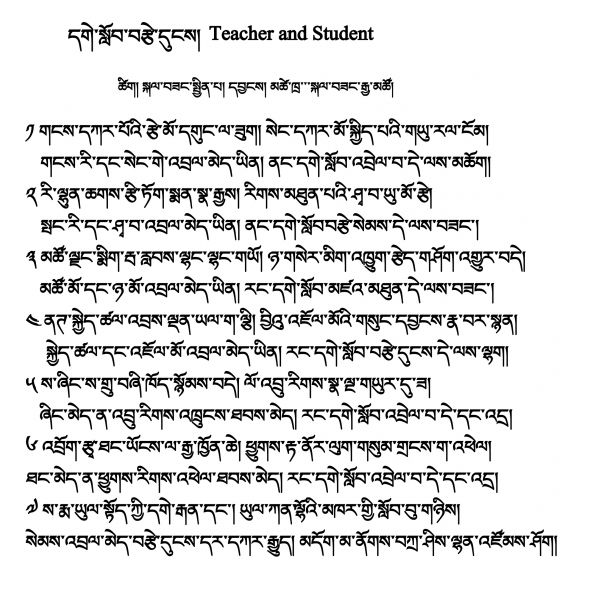 དགེ་སློབ་བརྩེ་དུངས། Teacher and Student
ཚིག། སྐལ་བཟང་སྦྱིན་པ། དབྱངས། མཚོ་ཁྲ་་་སྐལ་བཟང་རྒྱ་མཚོ།
༡ གངས་དཀར་པོའི་རྩེ་མོ་དགུང་ལ་ཟུག། སེང་དཀར་མོ་སྐྱིད་པའི་གཡུ་རལ་ངོམ།
གངས་རི་དང་སེང་གེ་འབྲལ་མེད་ཡིན། ནང་དགེ་སློབ་འབྲེལ་བ་དེ་ལས་མཆོག།
༢ རི་ལྷུན་ཆགས་རྩི་ཏོག་སྨན་སྣ་རྒྱས། རིགས་མཐུན་པའི་ཤྭ་བ་ཡུ་མོ་རྩེ།
སྤང་རི་དང་ཤྭ་བ་འབྲལ་མེད་ཡིན། ནང་དགེ་སློབ་བརྩེ་སེམས་དེ་ལས་བཟང་།
༣ མཚོ་ལྗང་སྨིག་རྦ་རླབས་ལྷང་ལྷང་གཡོ། ཉ་གསེར་མིག་འཁྱུག་རྩེད་གཤོག་འགྱུར་བདེ།
མཚོ་མོ་དང་ཉ་མོ་འབྲལ་མེད་ཡིན། རང་དགེ་སློབ་མཛའ་མཐུན་དེ་ལས་བཟང་།
༤ ནཊ་སྐྱེད་ཚལ་འབྲས་ལྡན་ཡལ་ག་ལྕི། བྱིའུ་འཇོལ་མོའི་གསུང་དབྱངས་རྣ་བར་སྙན།
སྐྱེད་ཚལ་དང་འཇོལ་མོ་འབྲལ་མེད་ཡིན། རང་དགེ་སློབ་བརྩེ་དུངས་དེ་ལས་ལྷག།
༥ ས་ཞིང་ས་གྲུ་བཞི་ཁོད་སྙོམས་བདེ། ལོ་འབྲུ་རིགས་སྣ་ལྔ་གཡུར་དུ་ཟ།
ཞིང་མེད་ན་འབྲུ་རིགས་འཁྲུངས་ཐབས་མེད། རང་དགེ་སློབ་འབྲེལ་བ་དེ་དང་འདྲ།
༦ འབྲོག་རྩྭ་ཐང་ཡོངས་ལ་རྒྱ་ཁྱོན་ཆེ། ཕྱུགས་རྟ་ནོར་ལུག་གསུམ་གྲངས་ག་འཕེལ།
ཐང་མེད་ན་ཕྱུགས་རིགས་འཕེལ་ཐབས་མེད། རང་དགེ་སློབ་འབྲེལ་བ་དེ་དང་འདྲ།
༧ ས་རྨ་ཡུལ་སྟོད་ཀྱི་དགེ་རྒན་དང་། ཡུལ་ཀན་ལྷོའི་མཁར་གྱི་སློབ་བུ་གཉིས།
སེམས་འབྲལ་མེད་བརྩེ་དུངས་དར་དཀར་རྒྱུད། མདོག་མ་ནོགས་བཀྲ་ཤིས་ལྷན་འཛོམས་ཤོག།